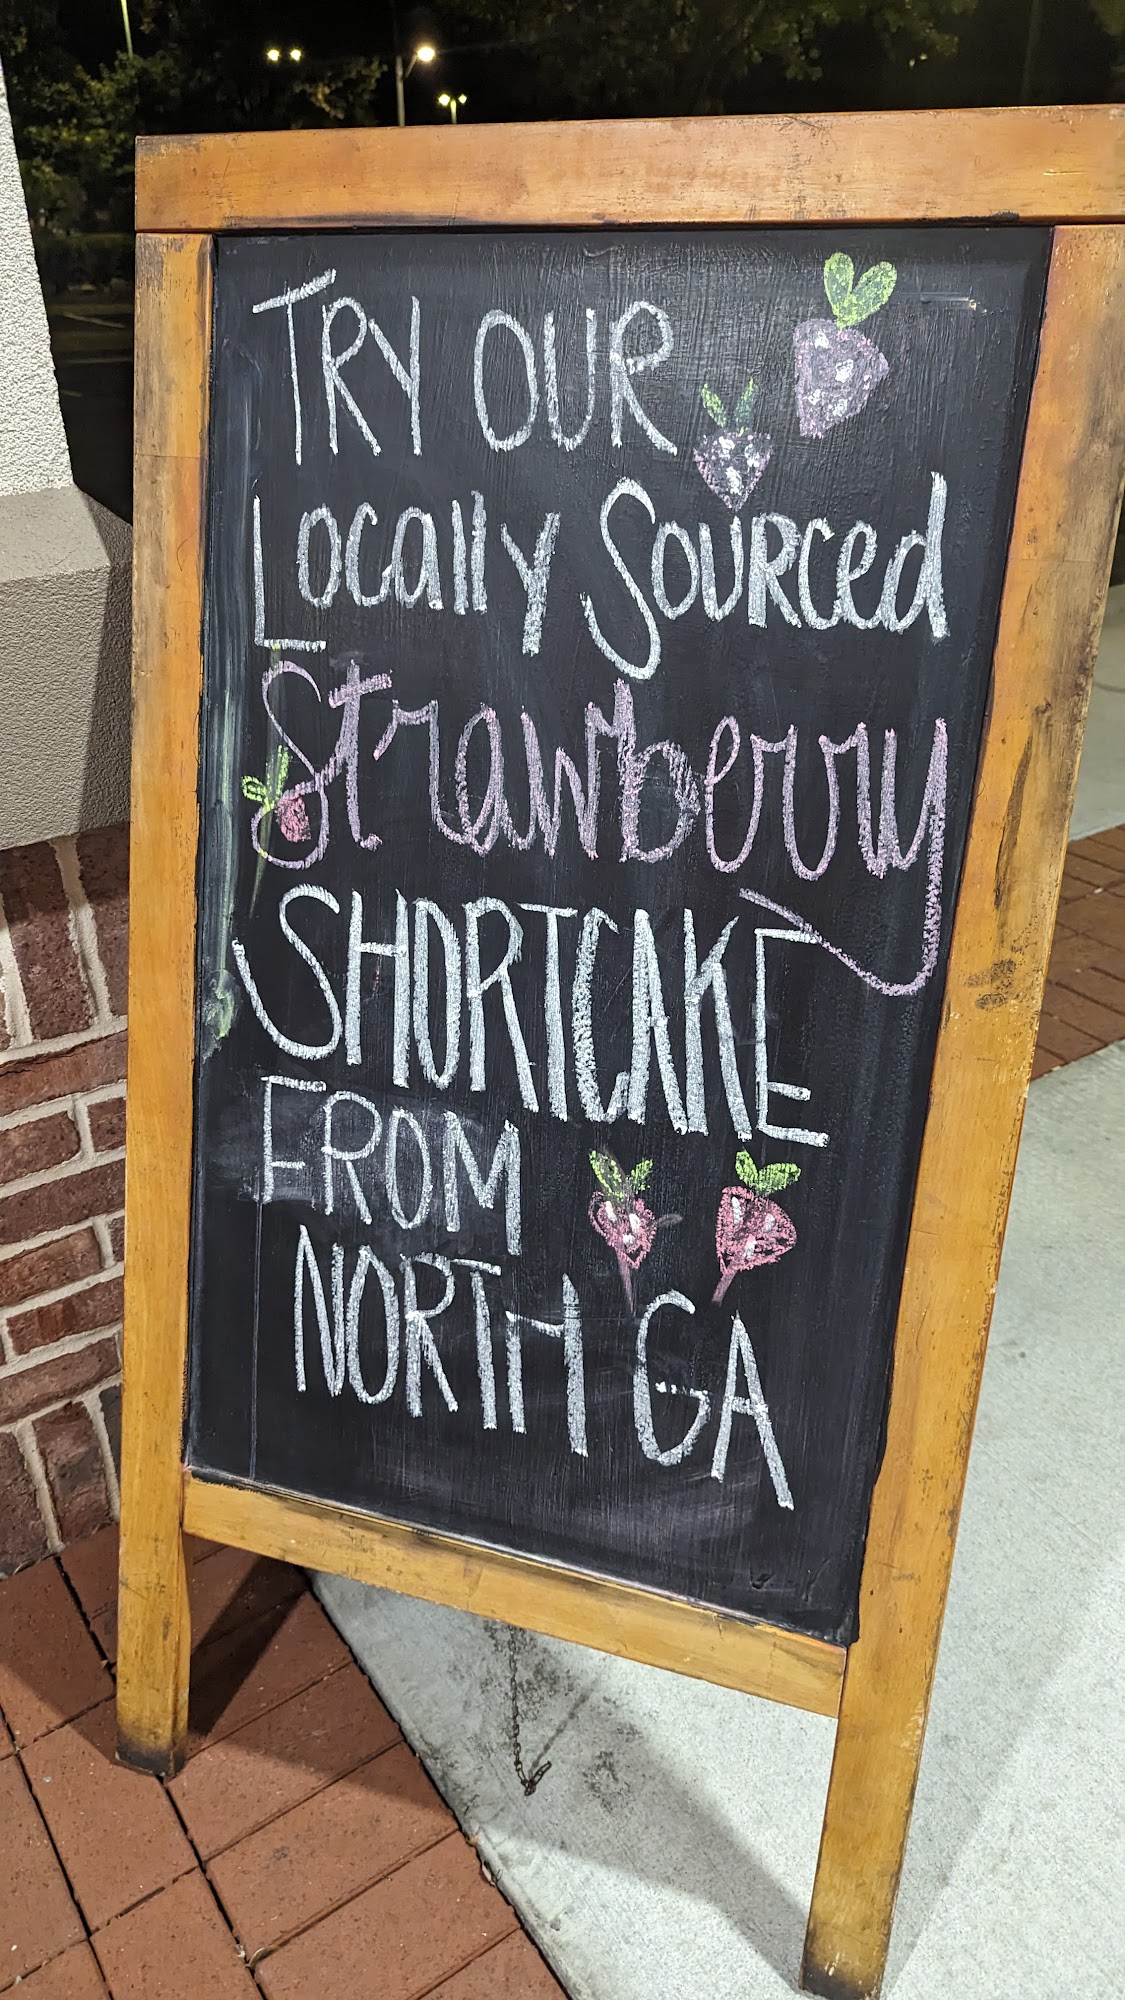 TRY OUR
Locally Sourced
Strawberry
SHORTCAKE
FROM
NORTH GA